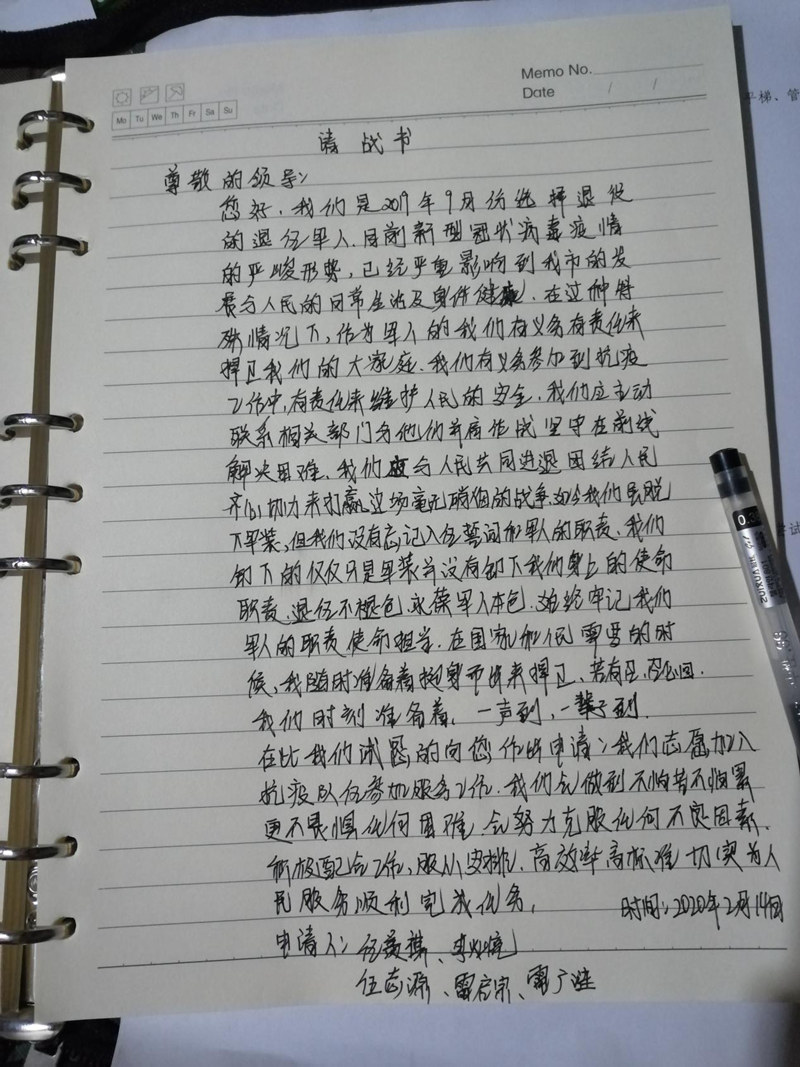 Memo No.
Date / /
Mo Tu We Th Fr Sa Su
请战书
尊敬的领导:
您好,我们是2019年9月份选择退役
的退伍军人.目前新型冠状病毒疫情
的严峻形势,已经严重影响到我市的发
展与人民的日常生活及身体健康.在这种特
殊情况下,作为军人的我们有义务有责任来
捍卫我们的大家庭.我们有义务参加到抗疫
工作中,有责任来维护人民的安全.我们应主动
联系相关部门与他们并肩作战坚守在前线
解决困难.我们应与人民共同进退团结人民
齐心协力来打赢这场毫无硝烟的战争.如今我们虽脱
下军装,但我们没有忘记入伍誓词和军人的职责.我们
卸下的仅仅只是军装并没有卸下我们身上的使命
职责.退伍不褪色,永葆军人本色.始终牢记我们
军人的职责使命担当.在国家和人民需要的时
候,我随时准备着挺身而出来捍卫.若有召,召必回.
我们时刻准备着,一声到,一辈子到.
在此我们诚恳的向您作出申请:我们志愿加入
抗疫队伍参加服务工作.我们会做到不怕苦不怕累
更不畏惧任何困难.会努力克服任何不良因素.
积极配合工作,服从安排,高效率高标准切实为人
民服务顺利完成任务.
时间:2020年2月14日
申请人:伍
伍志源、雷
0.5
平梯、管
考试